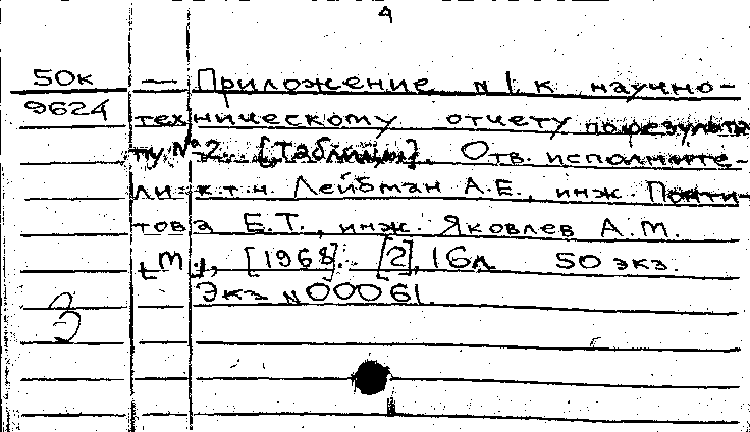 4
50к — Приложение N 1 к научно-
9624 техническому отчету по результа
ту №2. [Таблицы]. Отв. исполните-
ли: к.т.н. Лейбман А.Е., инж.
това Е.Т., инж. Яковлев А.М.
[М], [1968]. [2], 16л 50 экз.
3 Экз N 00061.